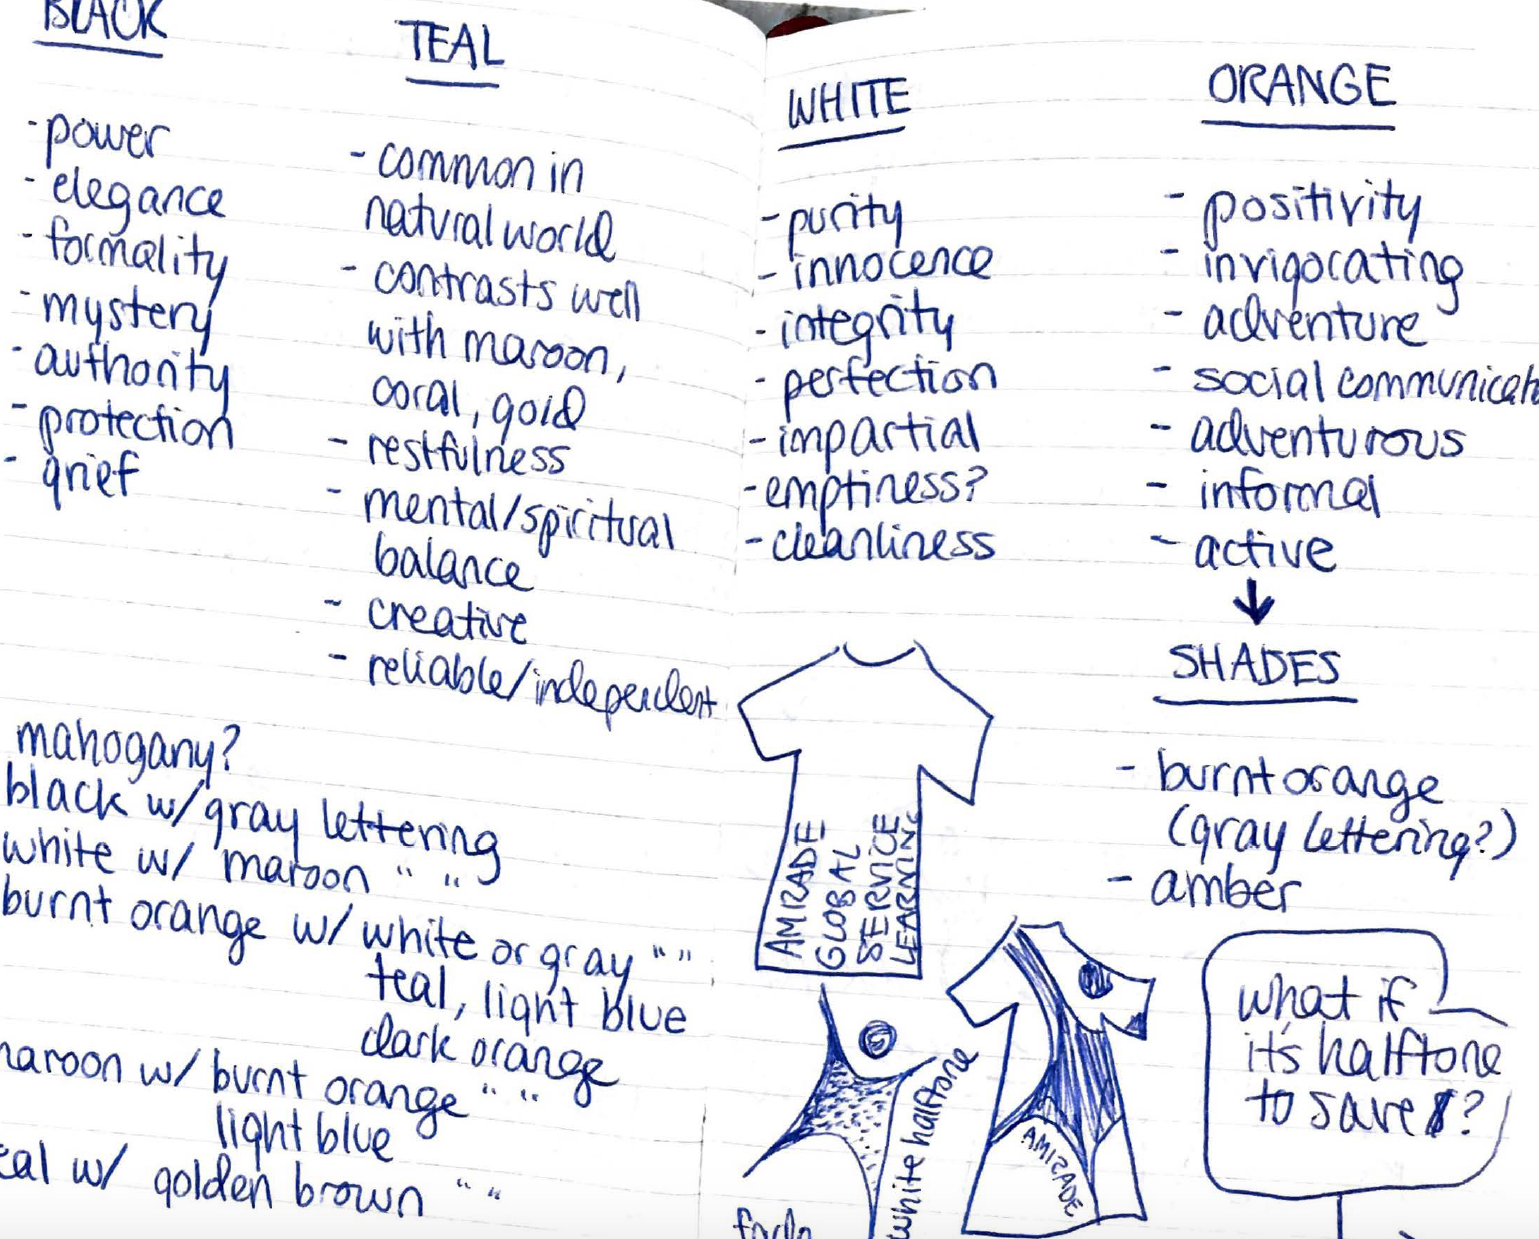 BLACK
- power
- elegance
- formality
- mystery
- authority
- protection
- grief
TEAL
- common in
natural world
- contrasts well
with maroon,
coral, gold
- restfulness
- mental/spiritual
balance
- creative
- reliable/independent
mahogany?
black w/ gray lettering
white w/ maroon " "
burnt orange w/ white or gray " "
teal, light blue
dark orange
maroon w/ burnt orange " "
light blue
teal w/ golden brown " "
WHITE
- purity
- innocence
- integrity
- perfection
- impartial
- emptiness?
- cleanliness
AMIZADE
GLOBAL
SERVICE
LEARNING
white halftone
AMIZADE
ORANGE
- positivity
- invigorating
- adventure
- social communicat
- adventurous
- informal
- active
↓
SHADES
- burnt orange
(gray lettering?)
- amber
what if
it's halftone
to save $?